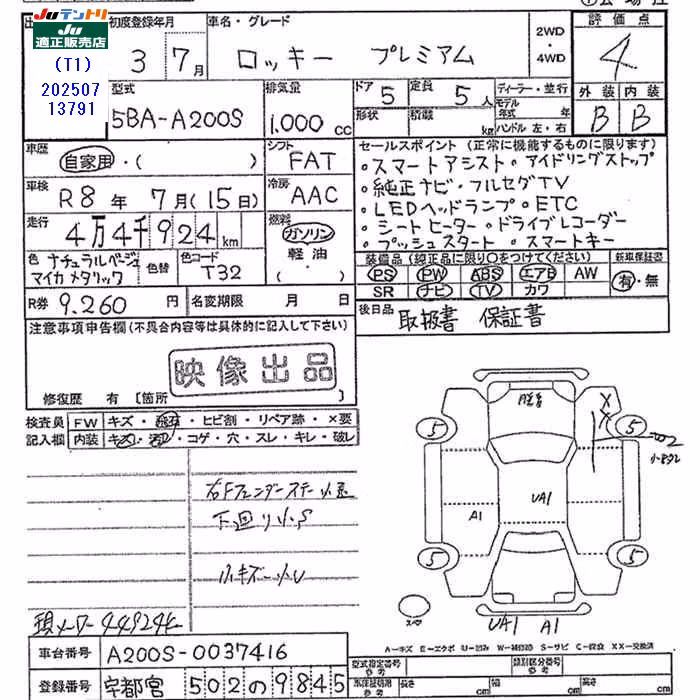 JUテントリ
JU
適正販売店
(T1)
202507
13791
初度登録年月
3 7月
車名・グレード
ロッキー プレミアム
2WD
・
4WD
評価点
4
外装 内装
B B
型式
5BA-A200S
排気量
1.000 cc
ドア
5
定員
5人
形状
積載
kg
ディーラー・並行
モデル
年式 年
ハンドル 左・右
車歴
自家用・( )
シフト
FAT
車検
R8年 7月(15日)
冷房
AAC
走行
4万4千924km
燃料
ガソリン
軽油
( )
色 ナチュラルベージュ
マイカメタリック
色替
色コード
T32
R券 9.260 円
名変期限 月 日
セールスポイント(正常に機能するものに限ります)
・スマートアシスト・アイドリングストップ
・純正ナビ・フルセグTV
・LEDヘッドランプ・ETC
・シートヒーター・ドライブレコーダー
・プッシュスタート・スマートキー
装備品(純正品に限り○をつけてください)
新車保証書
PS PW ABS エアB AW
SR ナビ TV カワ
有・無
後日品
取扱書 保証書
注意事項申告欄(不具合内容等は具体的に記入して下さい)
映像出品
修復歴 有 [箇所
検査員
記入欄
FW キズ・飛石・ヒビ割・リペア跡・×要
内装 キズ・汚れ・コゲ・穴・スレ・キレ・破レ
右Fフェンダーステー小
下回り小S
小キズ 小U
現メーター 44924k
5
5
5
5
A1
UA1
スペア
UA1 A1
A―キズ E―エクボ W―補修跡 S―サビ C―腐食 XX―交換済
車台番号 A200S-0037416
登録番号 宇都宮 502の9845
型式指定番号
参考
類別区分番号
参考
車体証明用
参考
長さ cm
幅 cm
高さ cm